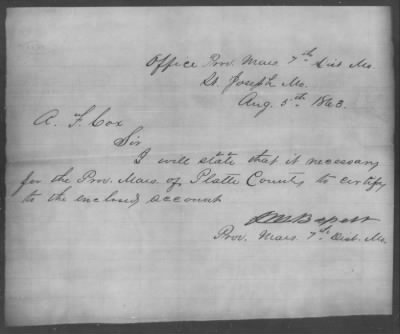 Office Prov. Mars 7th Dist Mo.
St. Joseph Mo.
Aug. 5th 1863.
A. F. Cox
Sir
I will state that it necessary
for the Prov. Mars. of Platte County to certify
to the enclosed account
Prov. Mars 7th Dist. Mo.